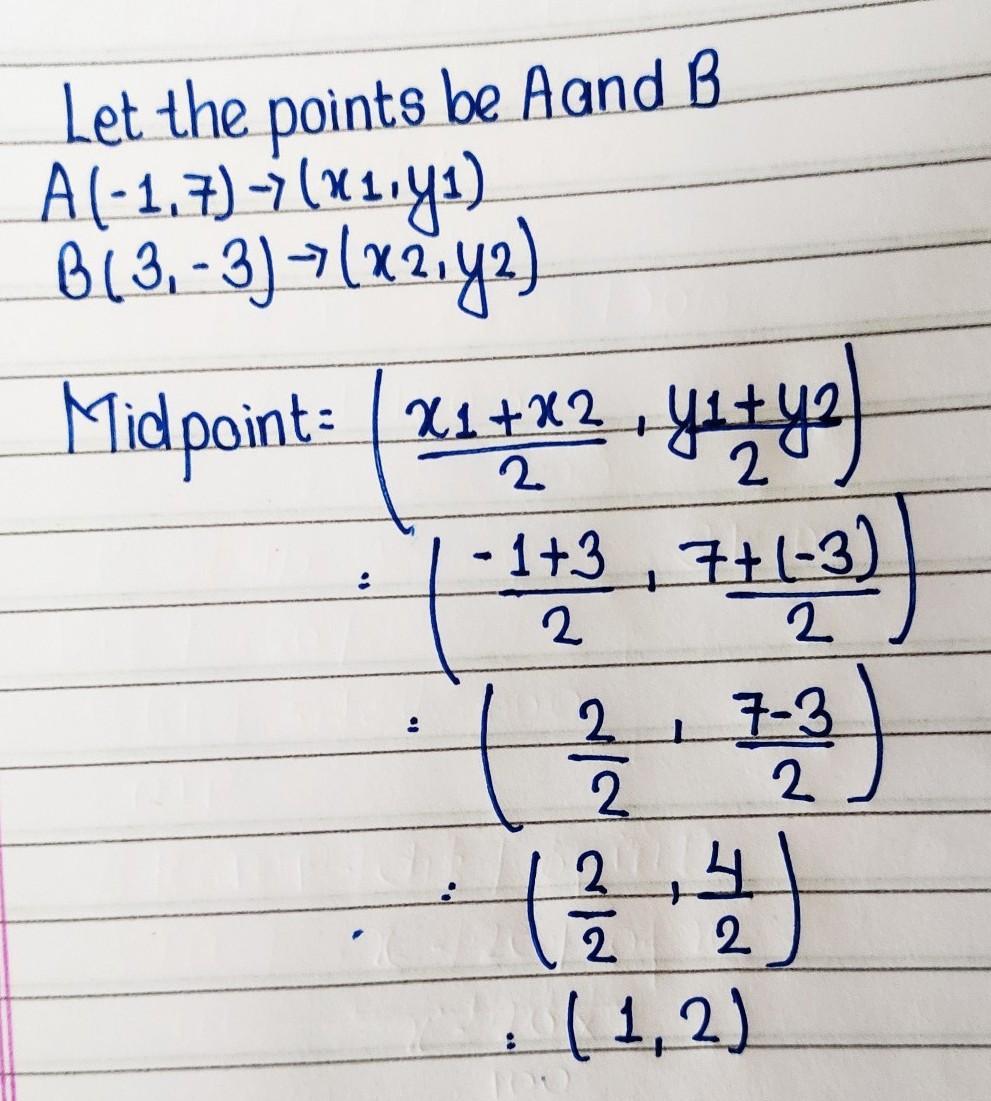 Let the points be A and B
A(-1,7)→(x1,y1)
B(3,-3)→(x2,y2)
Midpoint= (x1+x2/2, y1+y2/2)
= (-1+3/2, 7+(-3)/2)
= (2/2, 7-3/2)
= (2/2, 4/2)
= (1,2)